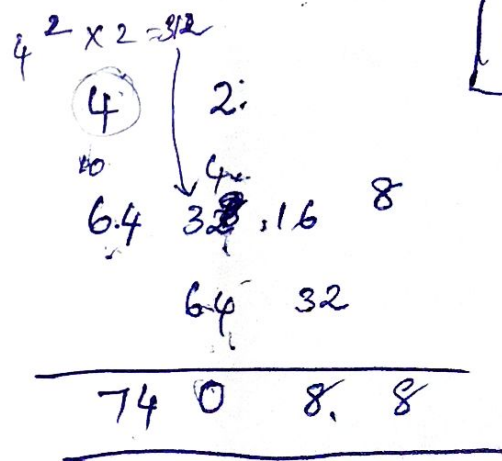 4² × 2 = 32
4 2
40 4
64 32 16 8
64 32
74 0 8 8